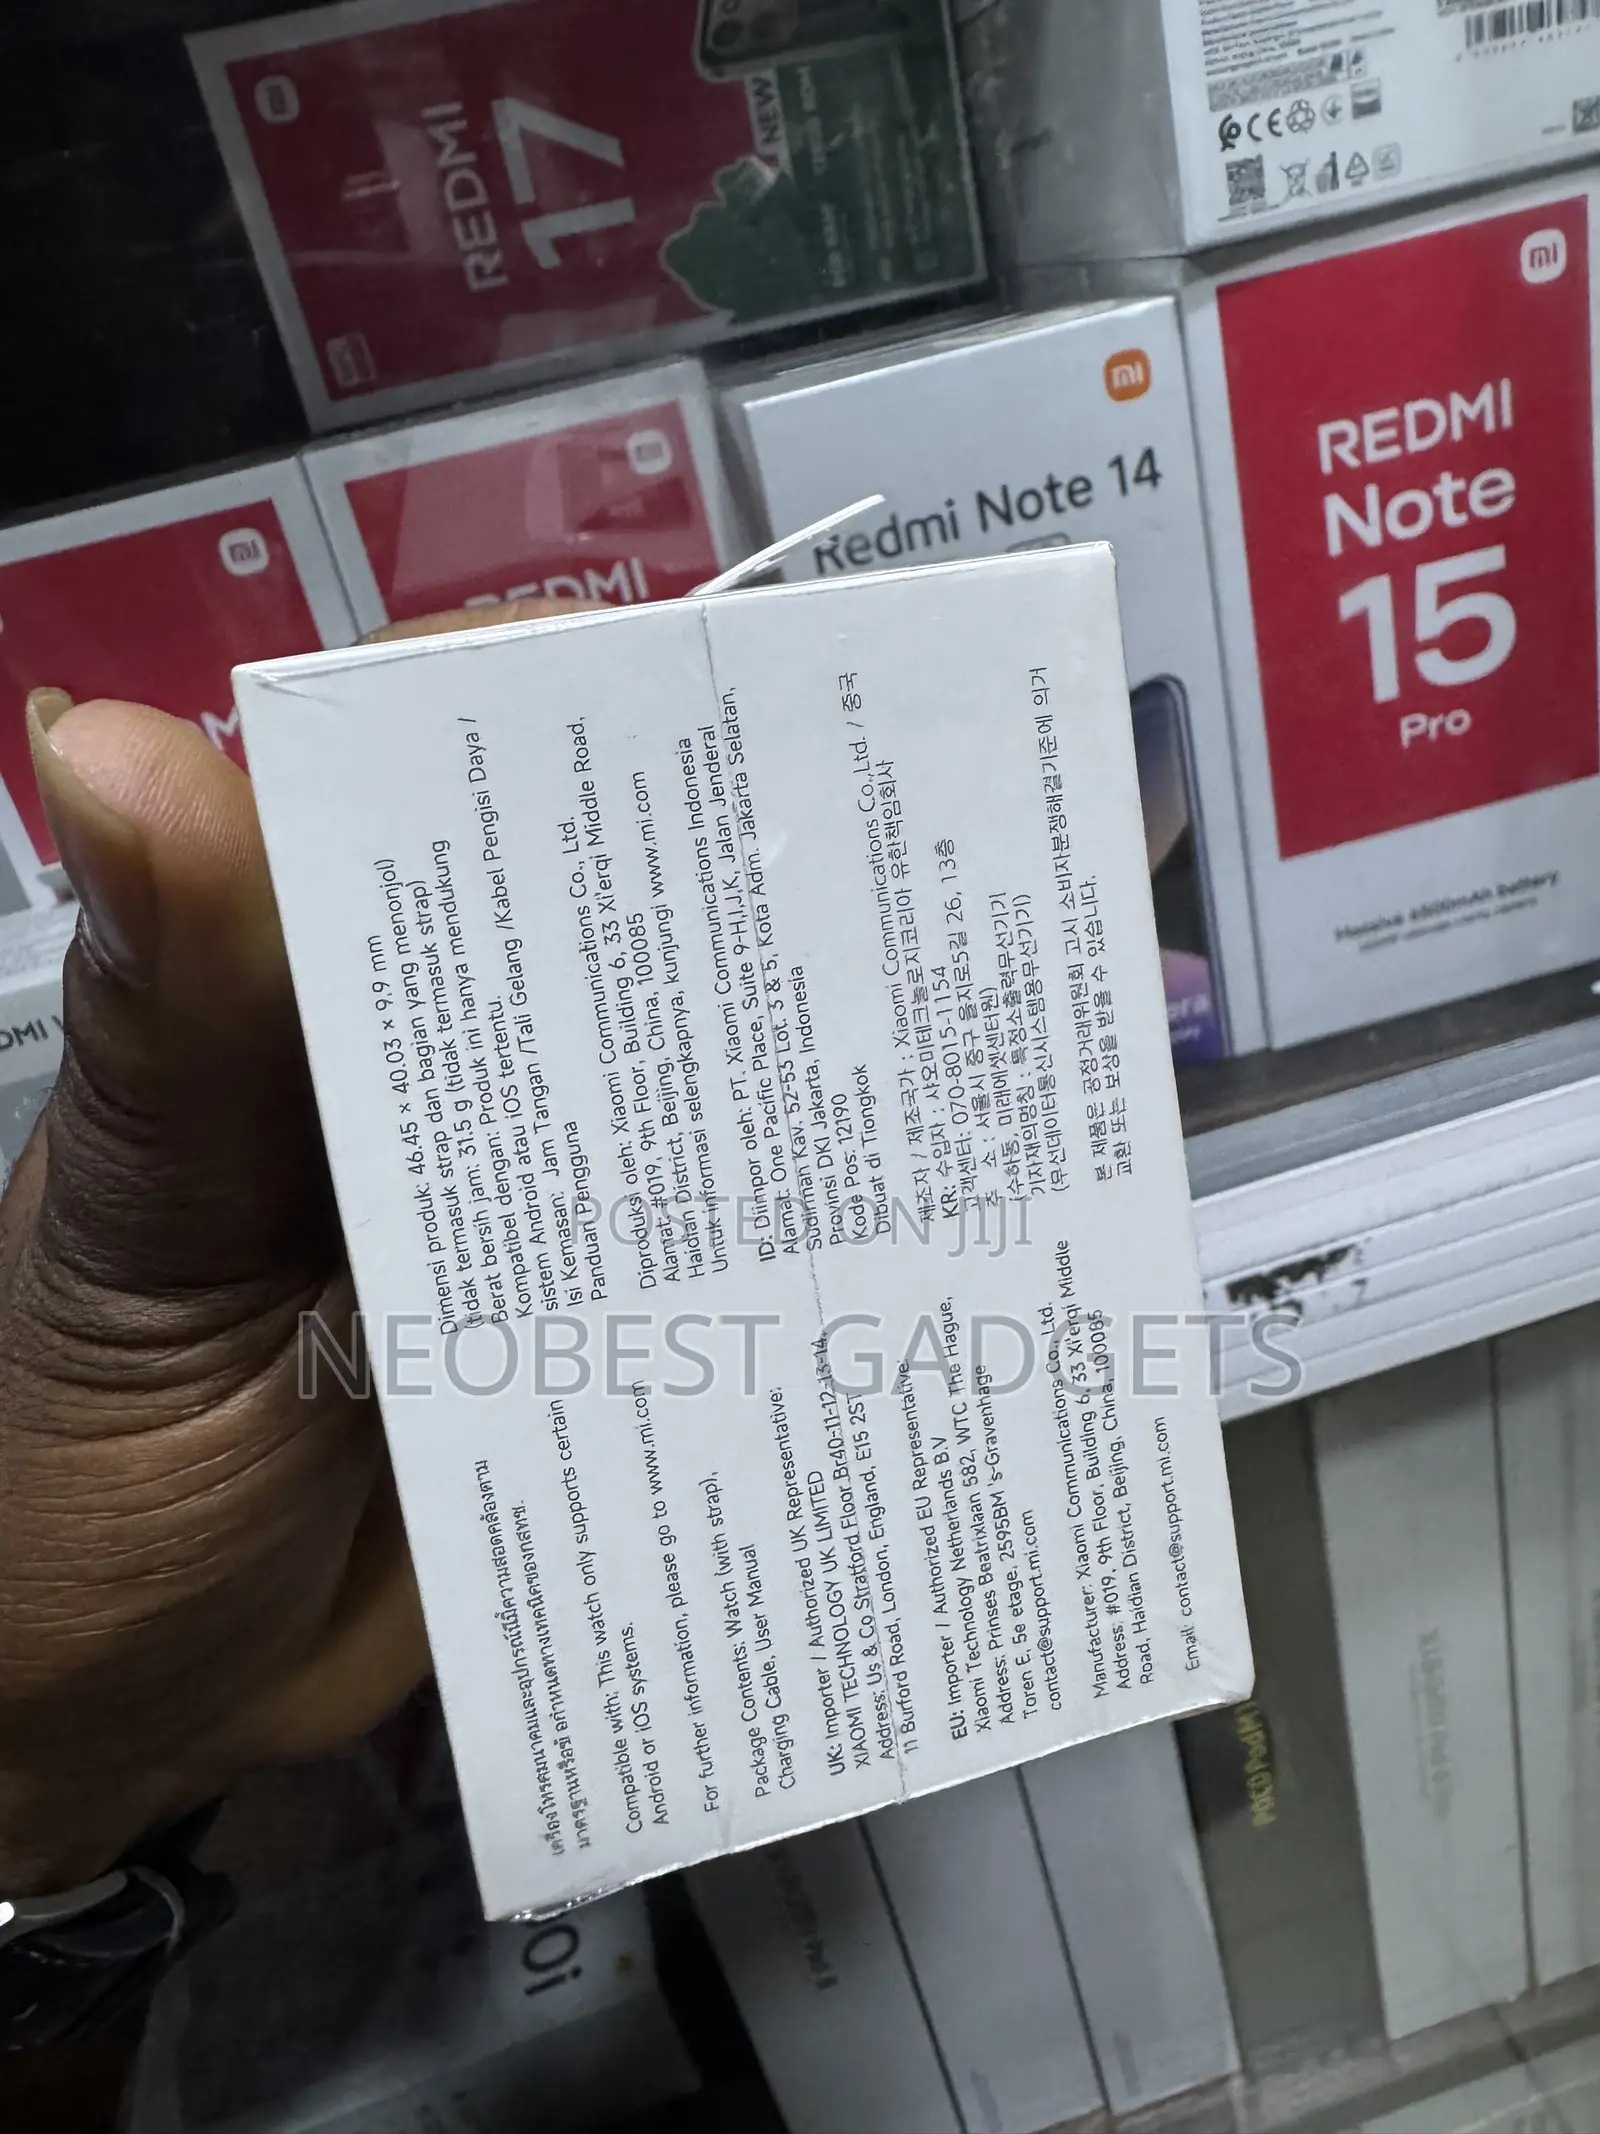 REDMI
17
NEW
REDMI
Redmi Note 14
REDMI
Note
15
Pro
Dimensi produk: 46.45 × 40.03 × 9.9 mm
(tidak termasuk strap dan bagian yang menonjol)
Berat bersih jam: 31.5 g (tidak termasuk strap)
Kompatibel dengan: Produk ini hanya mendukung
sistem Android atau iOS tertentu.
Isi Kemasan: Jam Tangan /Tali Gelang /Kabel Pengisi Daya /
Panduan Pengguna
Diproduksi oleh: Xiaomi Communications Co., Ltd.
Alamat: #019, 9th Floor, Building 6, 33 Xi'erqi Middle Road,
Haidian District, Beijing, China, 100085
Untuk informasi selengkapnya, kunjungi www.mi.com
ID: Diimpor oleh: PT. Xiaomi Communications Indonesia
Alamat: One Pacific Place, Suite 9-H,I,J,K, Jalan Jenderal
Sudirman Kav. 52-53 Lot. 3 & 5, Kota Adm. Jakarta Selatan,
Provinsi DKI Jakarta, Indonesia
Kode Pos: 12190
Dibuat di Tiongkok
제조자 / 제조국가 : Xiaomi Communications Co.,Ltd. / 중국
KR: 수입자 : 샤오미테크놀로지코리아 유한책임회사
고객센터: 070-8015-1154
주 소 : 서울시 중구 을지로5길 26, 13층
(수하동, 미래에셋센터원)
기자재의명칭 : 특정소출력무선기기
(무선데이터통신시스템용무선기기)
본 제품은 공정거래위원회 고시 소비자분쟁해결기준에 의거
교환 또는 보상을 받을 수 있습니다.
เครื่องโทรคมนาคมและอุปกรณ์นี้มีความสอดคล้องตาม
มาตรฐานหรือข้อกำหนดทางเทคนิคของกสทช.
Compatible with: This watch only supports certain
Android or iOS systems.
For further information, please go to www.mi.com
Package Contents: Watch (with strap),
Charging Cable, User Manual
UK: Importer / Authorized UK Representative:
XIAOMI TECHNOLOGY UK LIMITED
Address: Us & Co Stratford Floor Br40-11-12-13-14,
11 Burford Road, London, England, E15 2ST
EU: Importer / Authorized EU Representative:
Xiaomi Technology Netherlands B.V
Address: Prinses Beatrixlaan 582, WTC The Hague,
Toren E, 5e etage, 2595BM 's-Gravenhage
contact@support.mi.com
Manufacturer: Xiaomi Communications Co., Ltd.
Address: #019, 9th Floor, Building 6, 33 Xi'erqi Middle
Road, Haidian District, Beijing, China, 100085
Email: contact@support.mi.com
POSTED ON JIJI
NEOBEST GADGETS